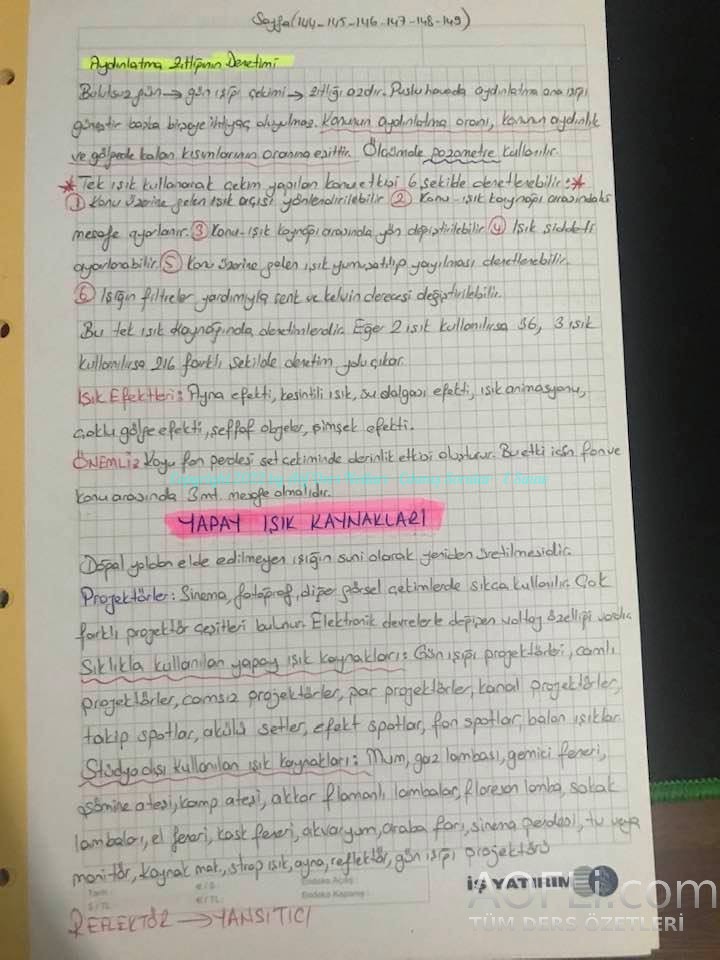 Sayfa(144-145-146-147-148-149)
Aydınlatma Zıtlığının Denetimi
Bulutsuz gün → gün ışığı çekimi → zıtlığı azdır. Puslu havada aydınlatma ana ışığı
güneştir başka birşeye ihtiyaç duyulmaz. Konunun aydınlatma oranı, konunun aydınlık
ve gölgede kalan kısımlarının oranına eşittir. Ölçümde pozometre kullanılır.
* Tek ışık kullanarak çekim yapılan konu etkisi 6 şekilde denetlenebilir: *
① Konu üzerine gelen ışık açısı yönlendirilebilir ② Konu-ışık kaynağı arasındaki
mesafe ayarlanır. ③ Konu-ışık kaynağı arasında yön değiştirilebilir ④ Işık şiddeti
ayarlanabilir. ⑤ Konu üzerine gelen ışık yumuşatılıp yayılması denetlenebilir.
⑥ Işığın filtreler yardımıyla renk ve kelvin derecesi değiştirilebilir.
Bu tek ışık kaynağında denetimlerdir. Eğer 2 ışık kullanılırsa 36, 3 ışık
kullanılırsa 216 farklı şekilde denetim yolu çıkar.
Işık Efektleri: Ayna efekti, kesintili ışık, su dalgası efekti, ışık animasyonu,
çoklu gölge efekti, şeffaf objeler, şimşek efekti.
ÖNEMLİ: Koyu fon perdesi set çekiminde derinlik etkisi oluşturur. Bu etki için fon ve
konu arasında 3 mt. mesafe olmalıdır.
YAPAY IŞIK KAYNAKLARI
Doğal yoldan elde edilmeyen ışığın suni olarak yeniden üretilmesidir.
Projektörler: Sinema, fotoğraf, diğer görsel çekimlerde sıkça kullanılır. Çok
farklı projektör çeşitleri bulunur. Elektronik devrelerle değişen voltaj özelliği vardır.
Sıklıkla kullanılan yapay ışık kaynakları: Gün ışığı projektörleri, camlı
projektörler, camsız projektörler, par projektörler, kanal projektörler,
takip spotlar, akülü setler, efekt spotlar, fon spotlar, balon ışıklar
Stüdyo dışı kullanılan ışık kaynakları: Mum, gaz lambası, gemici feneri,
şömine ateşi, kamp ateşi, akkor flamanlı lambalar, floresan lamba, sokak
lambaları, el feneri, kask feneri, akvaryum, araba farı, sinema perdesi, tv veya
monitör, kaynak mak., strop ışık, ayna, reflektör, gün ışığı projektörü
Tarih :
$ / TL :
€ / $ :
€ / TL :
Endeks Açılış :
Endeks Kapanış :
İŞ YATIRIM
AOFLi.com
TÜM DERS ÖZETLERİ
REFLEKTÖR → YANSITICI